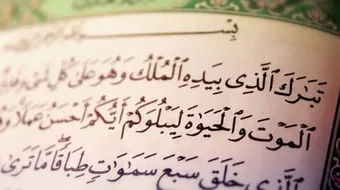 بِسْمِ
تَبَٰرَكَ ٱلَّذِى بِيَدِهِ ٱلْمُلْكُ وَهُوَ عَلَىٰ كُلِّ شَىْءٍ
ٱلْمَوْتَ وَٱلْحَيَوٰةَ لِيَبْلُوَكُمْ أَيُّكُمْ أَحْسَنُ عَمَلًا
ٱلَّذِى خَلَقَ سَبْعَ سَمَٰوَٰتٍ طِبَاقًا مَّا تَرَىٰ